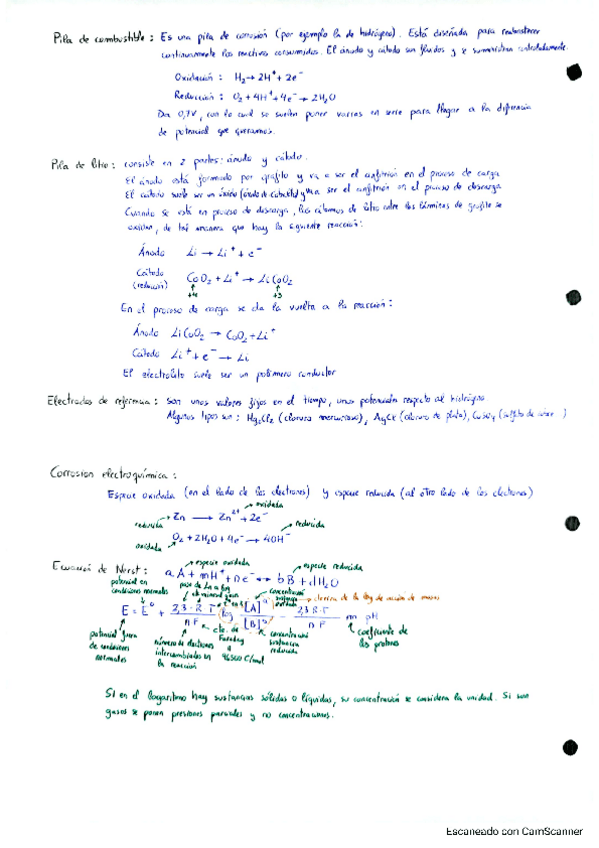 Pila de combustible : Es una pila de corrosión (por ejemplo la de hidrógeno). Está diseñada para reabastecer
continuamente los reactivos consumidos. El ánodo y cátodo son fluidos y se suministran continuadamente.
Oxidación : H₂→2H⁺+2e⁻
Reducción : O₂+4H⁺+4e⁻→2H₂O
Da 0,7V, con lo cual se suelen poner varias en serie para llegar a la diferencia
de potencial que queramos.
Pila de litio : consiste en 2 partes: ánodo y cátodo.
El ánodo está formado por grafito y va a ser el anfitrión en el proceso de carga
El cátodo suele ser un óxido (óxido de cobalto) y va a ser el anfitrión en el proceso de descarga
Cuando se está en proceso de descarga, los átomos de litio entre las láminas de grafito se
oxidan, de tal manera que hay la siguiente reacción:
Ánodo Li → Li⁺ + e⁻
Cátodo (reducción) CoO₂ + Li⁺ → LiCoO₂
+4 +3
En el proceso de carga se da la vuelta a la reacción :
Ánodo LiCoO₂ → CoO₂ + Li⁺
Cátodo Li⁺ + e⁻ → Li
El electrolito suele ser un polímero conductor
Electrodos de referencia : son unos valores fijos en el tiempo, unos potenciales respecto al hidrógeno
Algunos tipos son : Hg₂Cl₂ (cloruro mercurioso), AgCl (cloruro de plata), CuSO₄ (sulfato de cobre)
Corrosión electroquímica :
Especie oxidada (en el lado de los electrones) y especie reducida (al otro lado de los electrones)
oxidada
reducida Zn → Zn²⁺ + 2e⁻
reducida
oxidada O₂ + 2H₂O + 4e⁻ → 4OH⁻
especie oxidada especie reducida
Ecuación de Nerst : a A + mH⁺ + n e⁻ ↔ b B + d H₂O
potencial en condiciones normales
paso de Ln a log
concentración sustancia oxidada
deriva de la ley de acción de masas
E = E⁰ + 2,3·R·T / n·F log [A]ᵃ / [B]ᵇ − 2,3·R·T / n·F m pH
potencial fuera de condiciones normales
número de electrones intercambiados en la reacción
cte. de Faraday
96500 C/mol
concentración sustancia reducida
coeficiente de los protones
Si en el logaritmo hay sustancias sólidas o líquidas, su concentración se considera la unidad. Si son
gases se ponen presiones parciales y no concentraciones.
Escaneado con CamScanner